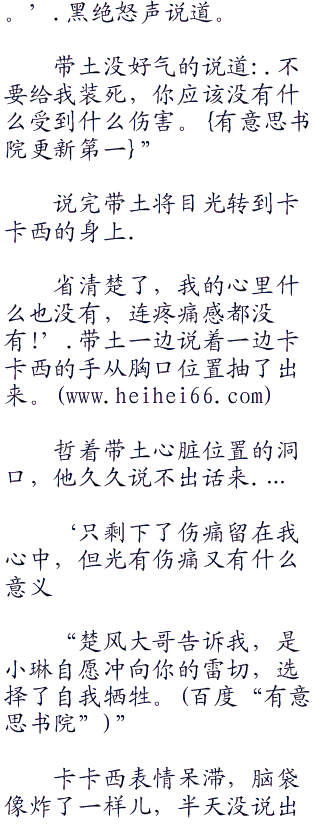 。’.黑绝怒声说道。
带土没好气的说道:.不
要给我装死，你应该没有什
么受到什么伤害。{有意思书
院更新第一}”
说完带土将目光转到卡
卡西的身上.
省清楚了，我的心里什
么也没有，连疼痛感都没
有!’.带土一边说着一边卡
卡西的手从胸口位置抽了出
来。(www.heihei66.com)
哲着带土心脏位置的洞
口，他久久说不出话来....
‘只剩下了伤痛留在我
心中，但光有伤痛又有什么
意义
“楚风大哥告诉我，是
小琳自愿冲向你的雷切，选
择了自我牺牲。(百度“有意
思书院”)”
卡卡西表情呆滞，脑袋
像炸了一样儿，半天没说出